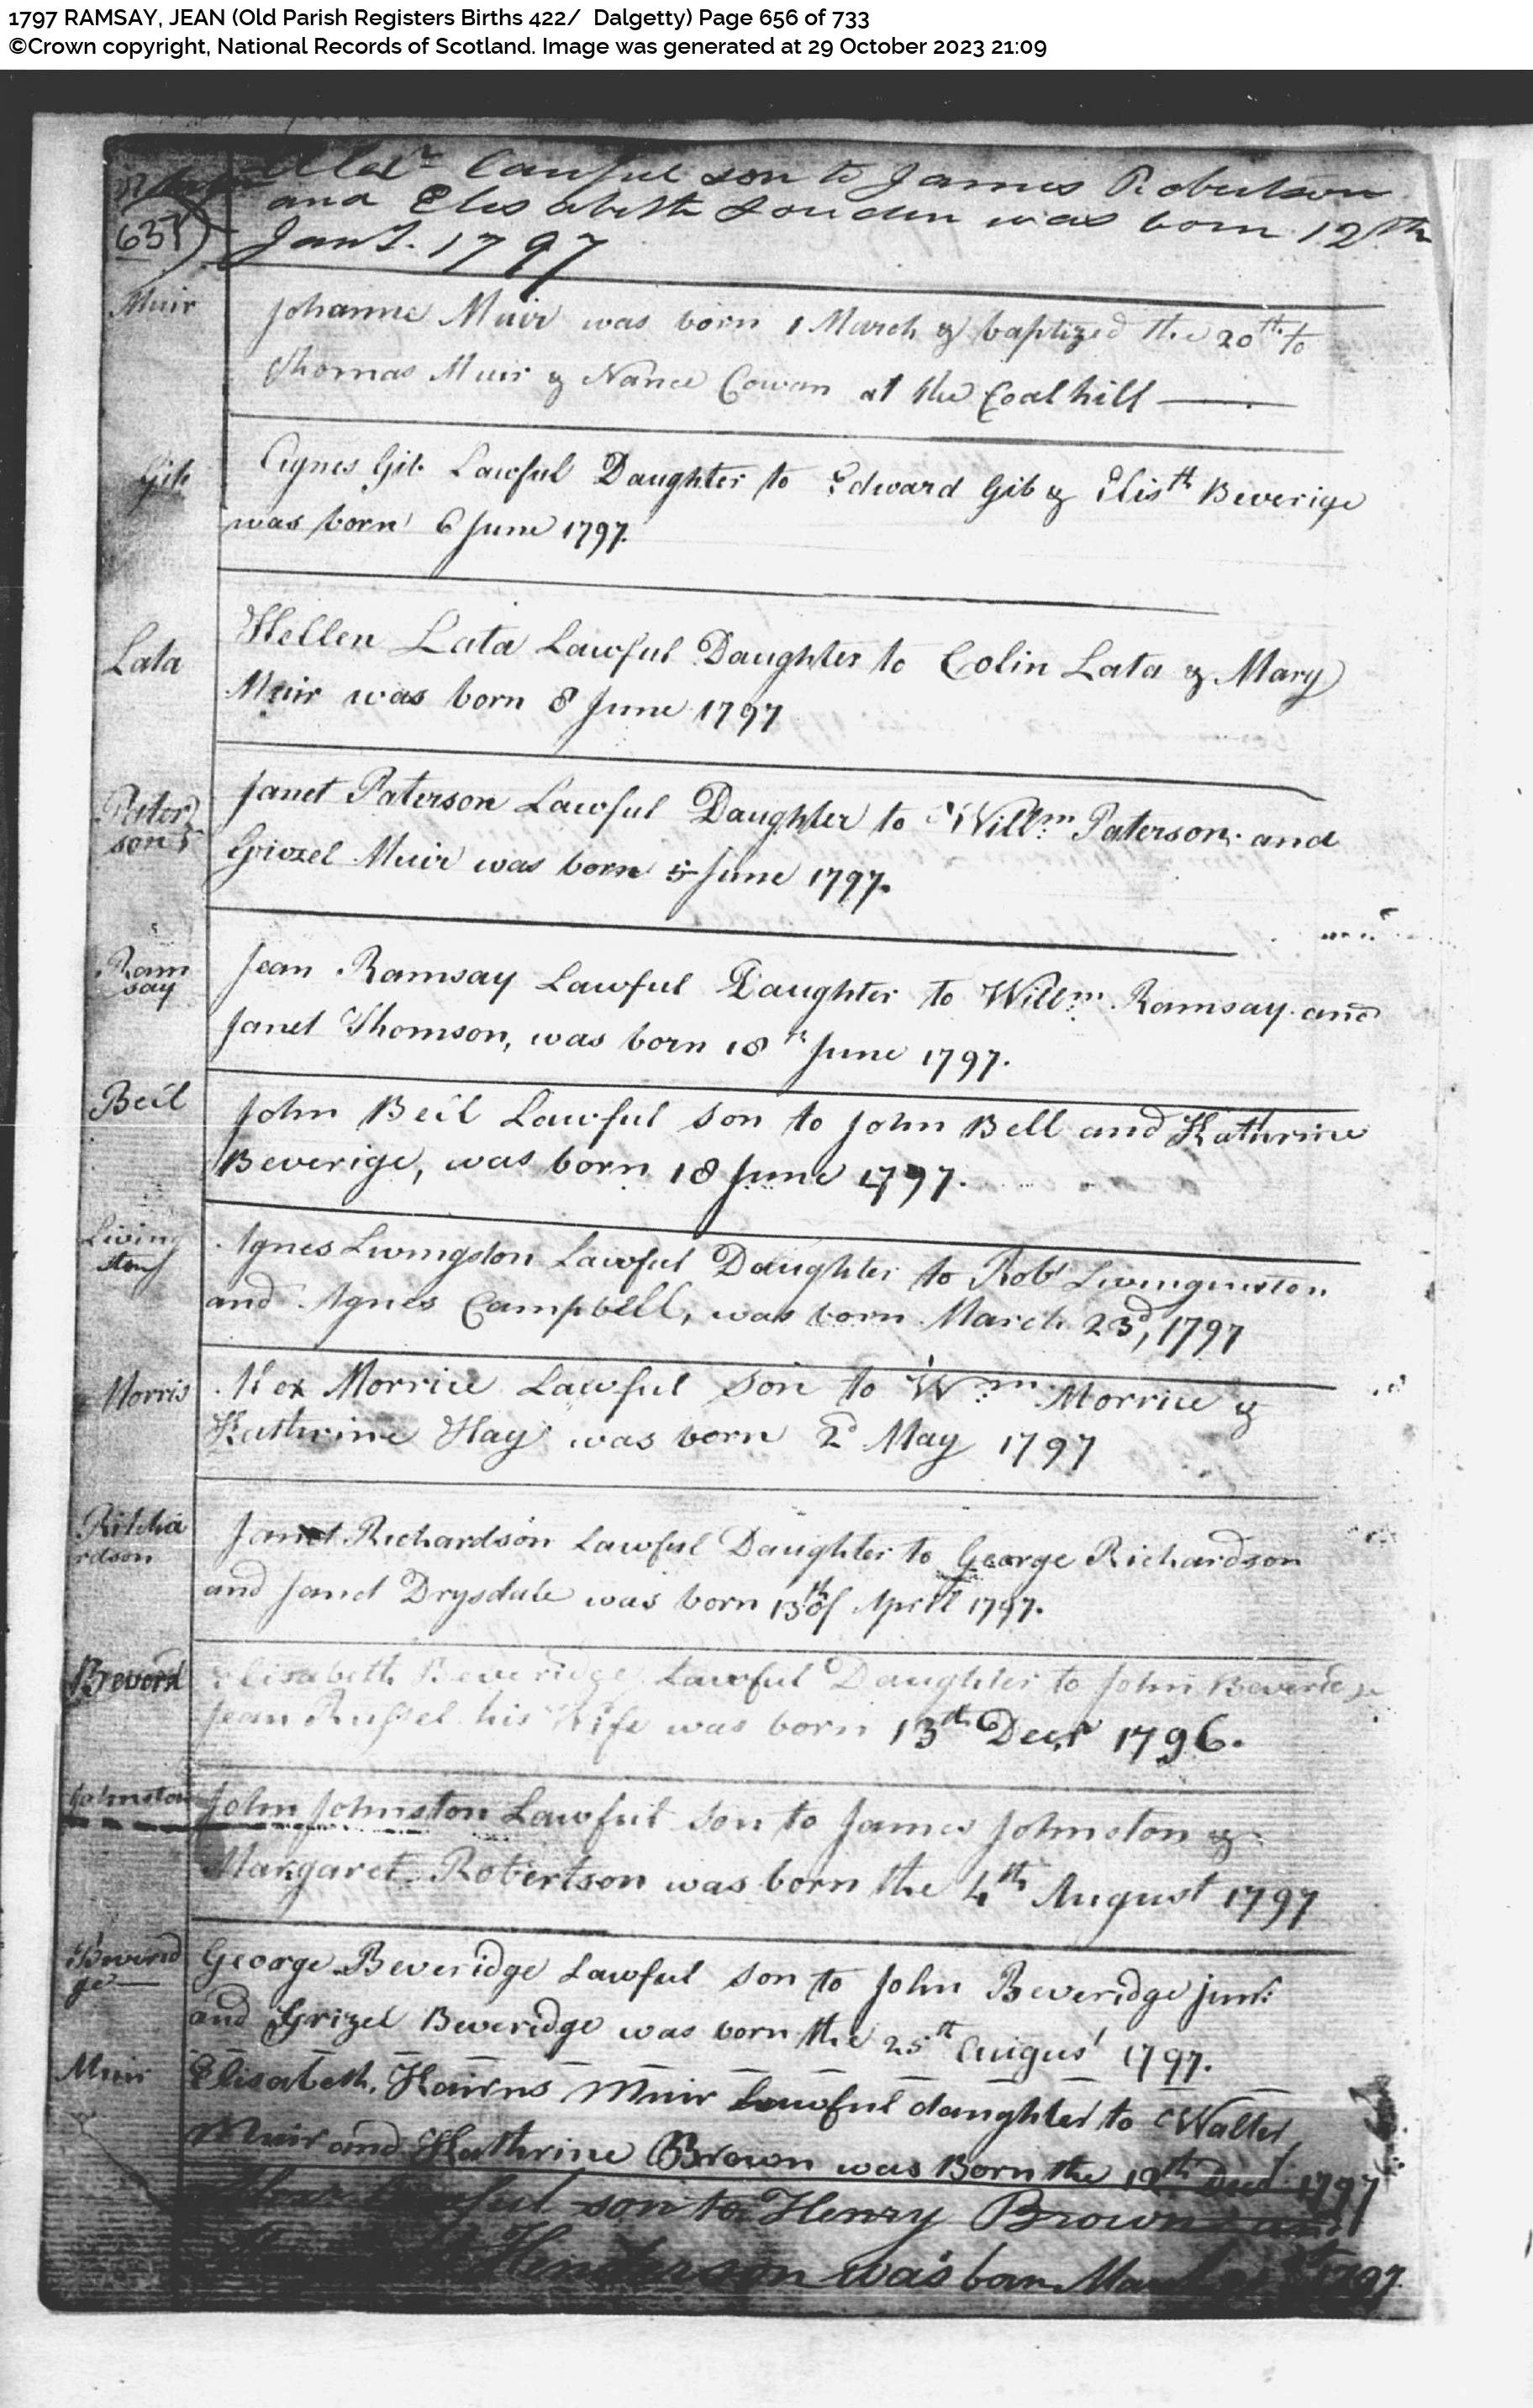 1797 RAMSAY, JEAN (Old Parish Registers Births 422/ Dalgetty) Page 656 of 733
©Crown copyright, National Records of Scotland. Image was generated at 29 October 2023 21:09
Alexr Lawful son to James Robertson
and Elisabeth Louden was born 12th
637
Jany. 1797
Muir
Johanne Muir was born 1 March & baptized the 20th to
Thomas Muir & Nance Cowan at the Coalhill
Gib
Agnes Gib Lawful Daughter to Edward Gib & Elisth Beverige
was born 6 June 1797.
Lata
Hellen Lata Lawful Daughter to Colin Lata & Mary
Muir was born 8 June 1797
Pater
son
Janet Paterson Lawful Daughter to Willm Paterson and
Grizzel Muir was born 5 June 1797.
Ram
say
Jean Ramsay Lawful Daughter to Willm. Ramsay and
Janet Thomson, was born 18th June 1797.
Beil
John Beil Lawful son to John Bell and Kathrine
Beverige, was born 18 June 1797.
Living
ston
Agnes Livingston Lawful Daughter to Robt Livinguiston
and Agnes Campbell, was born March 23d, 1797
Morris
Alex Morrice Lawful Son to Wm Morrice &
Kathrine Hay was born 2d May 1797
Ritcha
rdson
Janet Richardson Lawful Daughter to George Richardson
and Janet Drysdale was born 13th of Aprill 1797.
Beverd
Elisabeth Beveridge Lawful Daughter to John Beverdge
Jean Russel his Wife was born 13th Decr 1796.
Johnston
John Johnston Lawful Son to James Johnston &
Margaret Robertson was born the 4th August 1797
Beverid
ge
George Beveridge Lawful son to John Beveridge junr.
and Grizel Beveridge was born the 25th August 1797.
Muir
Elisabeth Kairns Muir Lawful daughter to Walter
Muir and Kathrine Brown was Born the 12th Decr 1797
Lawful son to Henry Brown and
Hinderson was born March 1797.